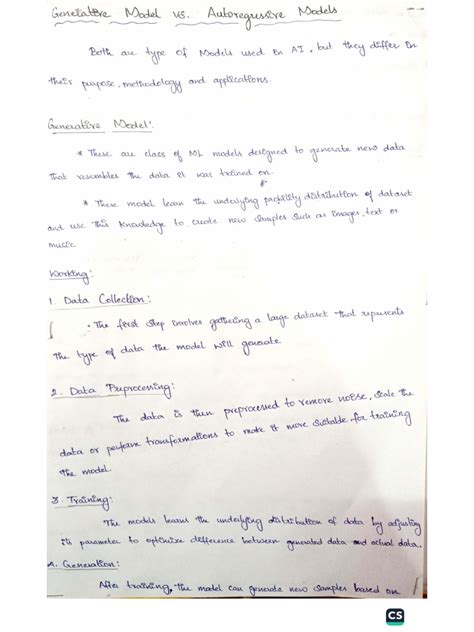 Generative Model vs. Autoregressive Models
Both are type of Models used in AI, but they differ in
their purpose, methodology and applications.
Generative Model:
* These are class of ML models designed to generate new data
that resembles the data it was trained on.
* These model learn the underlying distribution of dataset
and use this knowledge to create new samples such as images, text or
music
Working:
1. Data Collection:
• The first step involves gathering a large dataset that represents
the type of data the model will generate
2. Data Preprocessing:
The data is then preprocessed to remove noise, scale the
data or perform transformations to make it more suitable for training
the model.
3. Training:
The models learns the underlying distribution of data by adjusting
its parameter to optimize difference between generated data and actual data.
4. Generation:
After training, the model can generate new samples based on
CS